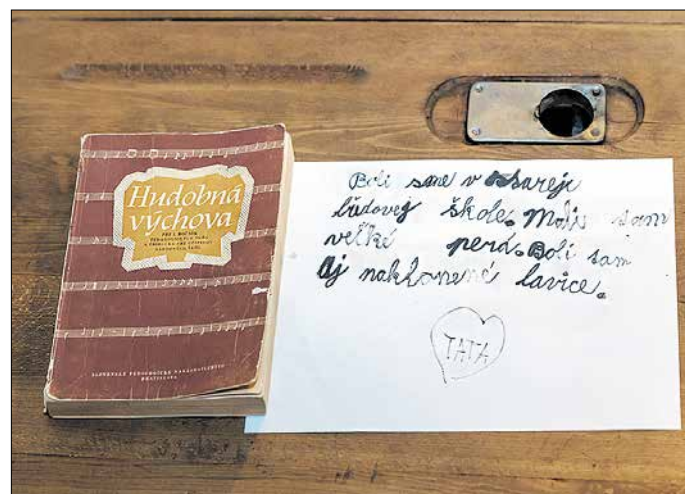 Hudobná
výchova
PRE I. ROČNÍK
SLOVENSKÉ PEDAGOGICKÉ NAKLADATEĽSTVO
BRATISLAVA
Boli sme v sareje
ľudovej škole. Moli sam
veľké perá. Boli sam
aj naklonené lavice.
TATA